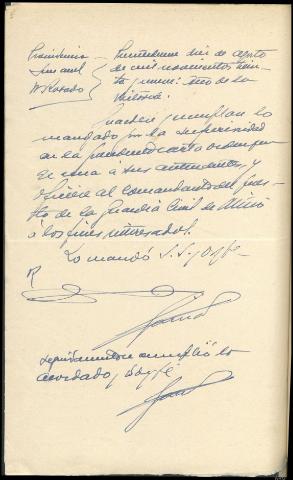 Providencia
Juez accl
R. Rosado
Puentedeume diez de agosto
de mil novecientos trein-
ta y nueve: Año de la
Victoria.
Guárdese y cúmplase lo
mandado por la superioridad
en la precedente carta orden que
se una a sus antecedentes y
ofíciese al comandante del pues-
to de la Guardia Civil de Miño
a los fines interesados.
Lo mandó S.S. y doy fe.
R
Seguidamente se cumplió lo
acordado, doy fé